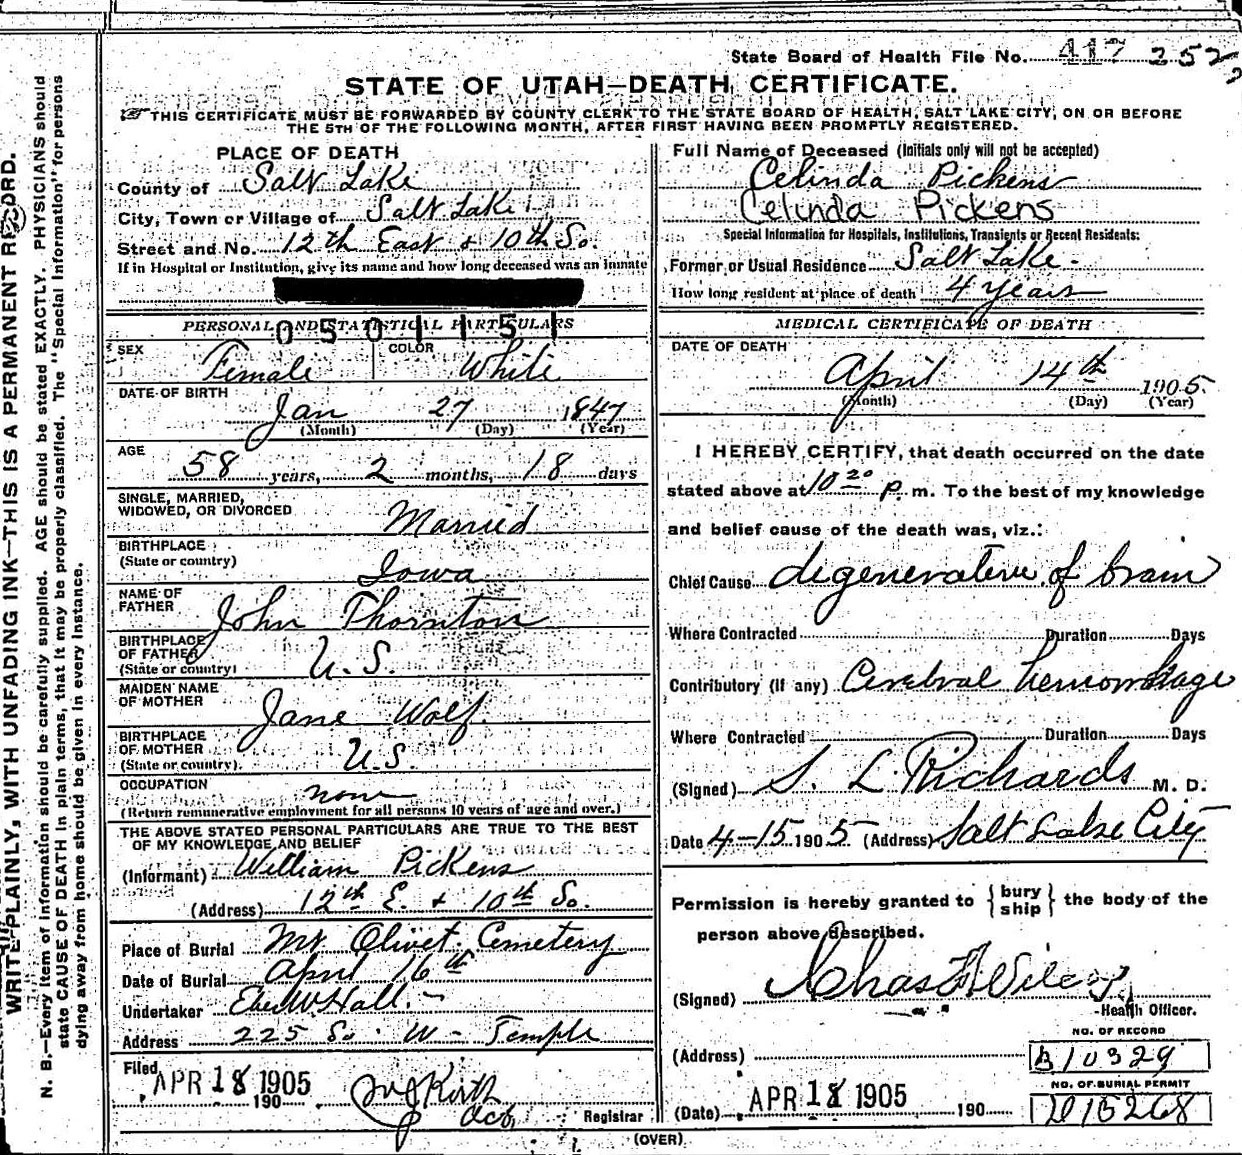 State Board of Health File No. 417 252
STATE OF UTAH—DEATH CERTIFICATE.
THIS CERTIFICATE MUST BE FORWARDED BY COUNTY CLERK TO THE STATE BOARD OF HEALTH, SALT LAKE CITY, ON OR BEFORE
THE 5TH OF THE FOLLOWING MONTH, AFTER FIRST HAVING BEEN PROMPTLY REGISTERED.
WRITE PLAINLY, WITH UNFADING INK—THIS IS A PERMANENT RECORD.
N. B.—Every item of information should be carefully supplied. AGE should be stated EXACTLY. PHYSICIANS should
state CAUSE OF DEATH in plain terms, that it may be properly classified. The "Special Information" for persons
dying away from home should be given in every instance.
PLACE OF DEATH
County of Salt Lake
City, Town or Village of Salt Lake
Street and No. 12th East & 10th So.
If in Hospital or Institution, give its name and how long deceased was an inmate
PERSONAL AND STATISTICAL PARTICULARS
0504151
SEX Female COLOR White
DATE OF BIRTH
Jan 27 1847
(Month) (Day) (Year)
AGE
58 years, 2 months, 18 days
SINGLE, MARRIED,
WIDOWED, OR DIVORCED Married
BIRTHPLACE
(State or country) Iowa
NAME OF
FATHER John Thornton
BIRTHPLACE
OF FATHER
(State or country) U.S.
MAIDEN NAME
OF MOTHER Jane Wolf.
BIRTHPLACE
OF MOTHER
(State or country) U.S.
OCCUPATION none
(Return remunerative employment for all persons 10 years of age and over.)
THE ABOVE STATED PERSONAL PARTICULARS ARE TRUE TO THE BEST
OF MY KNOWLEDGE AND BELIEF
(Informant) William Pickens
(Address) 12th E. & 10th So.
Place of Burial Mt Olivet Cemetery
Date of Burial April 16th
Undertaker Eber W Hall.
Address 225 So W Temple
Filed
APR 18 1905
190
Registrar
Full Name of Deceased (Initials only will not be accepted)
Celinda Pickens
Celinda Pickens
Special Information for Hospitals, Institutions, Transients or Recent Residents:
Former or Usual Residence Salt Lake.
How long resident at place of death 4 years
MEDICAL CERTIFICATE OF DEATH
DATE OF DEATH
April 14th 1905
(Month) (Day) (Year)
I HEREBY CERTIFY, that death occurred on the date
stated above at 10 20 p. m. To the best of my knowledge
and belief cause of the death was, viz.:
Chief Cause degenerative of brain
Where Contracted Duration Days
Contributory (if any) Cerebral hemorrhage
Where Contracted Duration Days
(Signed) S. L. Richards M. D.
Date 4-15 1905 (Address) Salt Lake City
Permission is hereby granted to {bury ship} the body of the
person above described.
(Signed) Chas
Health Officer.
(Address)
NO. OF RECORD
B10329
NO. OF BURIAL PERMIT
D15268
(Date) APR 18 1905 190
(OVER)